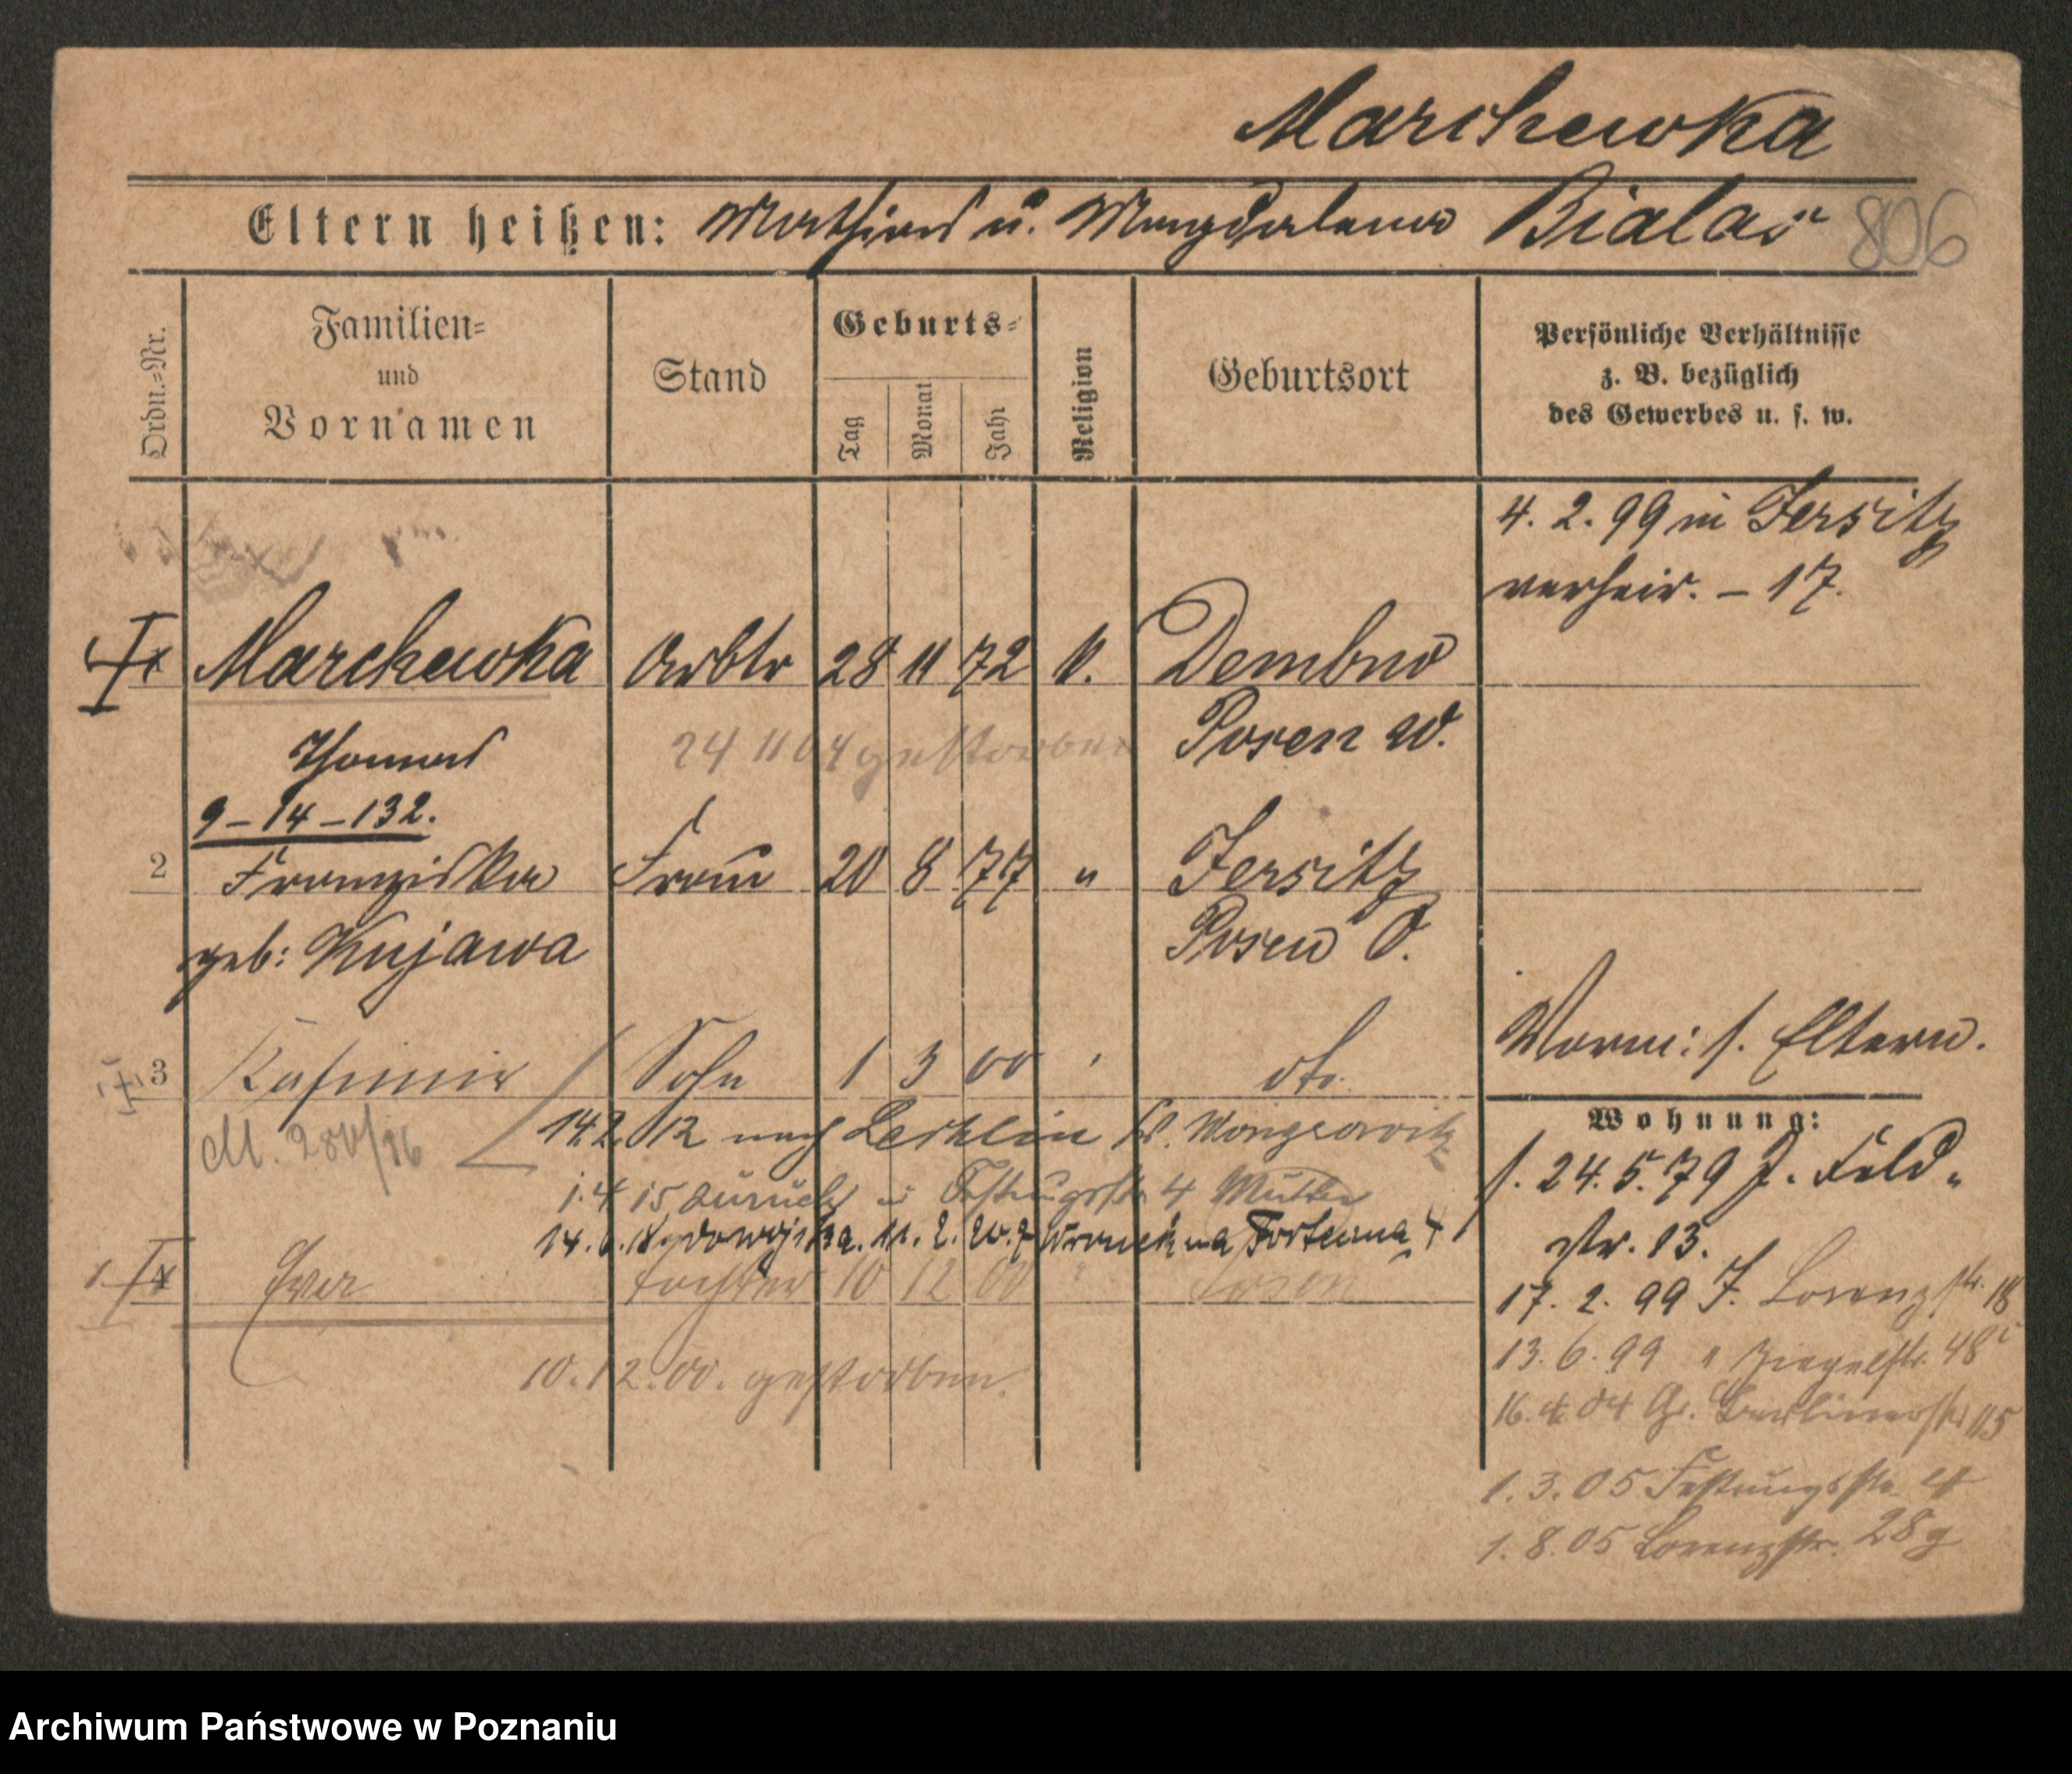 Marchewka
Eltern heißen: Mathias u. Magdalena Bialas 806
Ordn.=Nr.
Familien=
und
Vornamen
Stand
Geburts=
Tag
Monat
Jahr
Religion
Geburtsort
Persönliche Verhältnisse
z. B. bezüglich
des Gewerbes u. s. w.
4. 2. 99 in Jersitz
verheir. – 17.
Marchewka Arbtr 28 11 72 k. Dembno
Thomas 24 11 04 gestorben Posen W.
9 – 14 – 132.
2 Franziska Frau 20 8 77 " Jersitz
geb: Kujawa Posen O.
3 Kasimir Sohn 1 3 00
Vorm: s. Eltern.
Wohnung:
14.2.12 nach Lechlin Kr. Wongrowitz
1.4 15 zurück Festungsstr. 4 Mutter
14. 6. a. 11. 2. 20. Forteczna 4
s. 24. 5. 79 J. Feld-
str. 13.
Tochter 10 12 00 " Posen
17. 2. 99 J. Lorenzstr. 18
13. 6. 99 " Ziegelstr. 48
10.12.00. gestorben.
16. 4. 04 Gr. Berlinerstr 115
1. 3. 05 Festungsstr. 4
1. 8. 05 Lorenzstr. 28
Archiwum Państwowe w Poznaniu